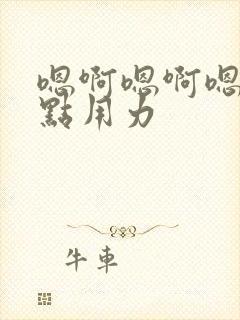 嗯啊嗯啊嗯
點用力
牛車